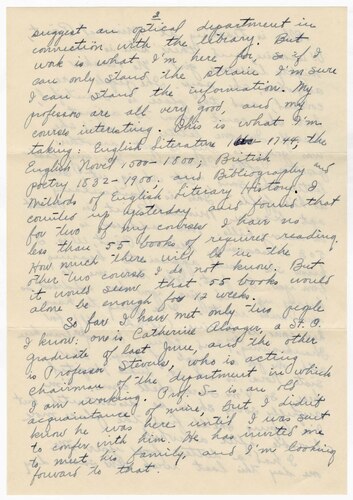 3
suggest an optical department in
connection with the library. But
work is what I'm here for, so if I
can only stand the strain I'm sure
I can stand the information. My
professors are all very good, and my
courses interesting. This is what I'm
taking: English Literature to 1744, the
English Novel 1500-1800; British
Poetry 1832-1900. and Bibliography and
Methods of English Literary History. I
counted up yesterday and found that
for two of my courses I have no
less than 55 books of required reading.
How much there will be in the
other two courses I do not know. But
it would seem that 55 books would
alone be enough for 12 weeks.
So far I have met only two people
I know: one is Catherine, a St. O.
graduate of last June, and the other
is Professor Stevens, who is acting
chairman of the department in which
I am working. Prof. S- is an old
acquaintance of mine, but I didn't
know he was here until I was sent
to confer with him. He has invited me
to meet his family and I'm looking
forward to that.